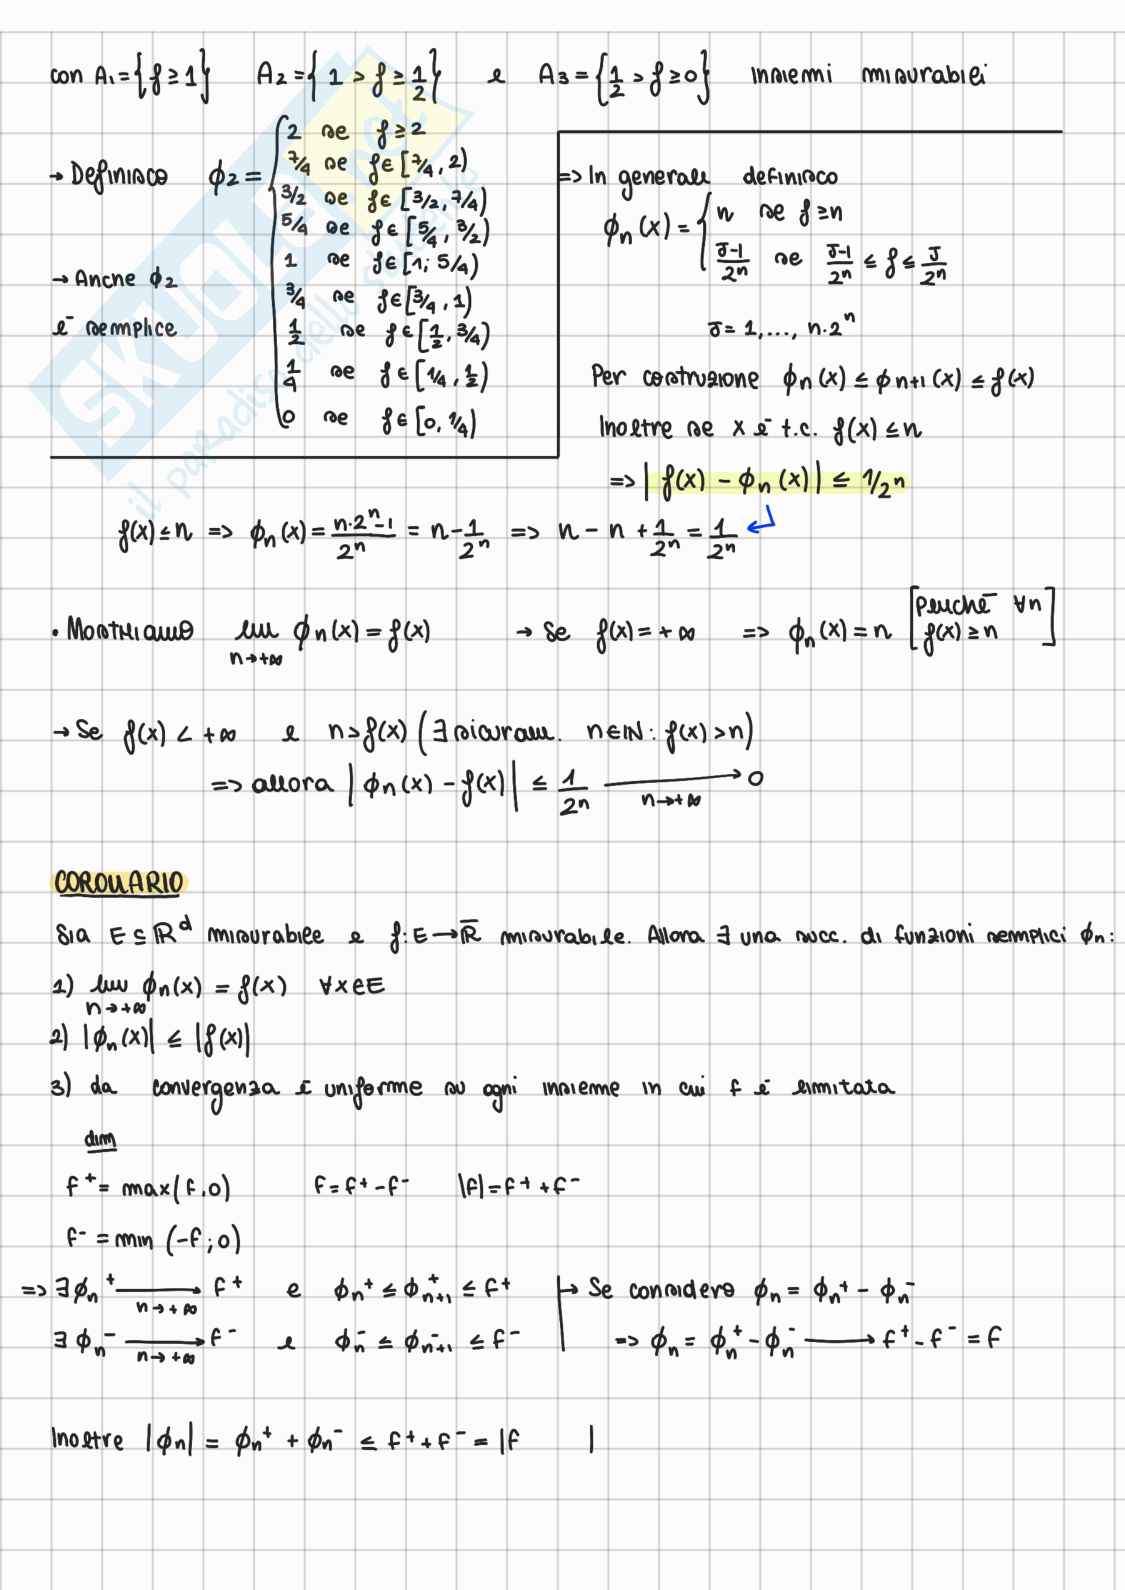 con A₁ = {f ≥ 1} A₂ = {1 > f ≥ 1/2} e A₃ = {1/2 > f ≥ 0} insiemi misurabili
→ Definisco ϕ₂ = { 2 se f ≥ 2
7/4 se f ∈ [7/4, 2)
3/2 se f ∈ [3/2, 7/4)
5/4 se f ∈ [5/4, 3/2)
1 se f ∈ [1; 5/4)
3/4 se f ∈ [3/4, 1)
1/2 se f ∈ [1/2, 3/4)
1/4 se f ∈ [1/4, 1/2)
0 se f ∈ [0, 1/4)
→ Anche ϕ₂
è semplice
=> In generale definisco
ϕₙ(x) = { n se f ≥ n
J-1/2ⁿ se J-1/2ⁿ ≤ f ≤ J/2ⁿ
J = 1, ..., n·2ⁿ
Per costruzione ϕₙ(x) ≤ ϕₙ₊₁(x) ≤ f(x)
Inoltre se x è t.c. f(x) ≤ n
=> |f(x) - ϕₙ(x)| ≤ 1/2ⁿ
f(x) ≤ n => ϕₙ(x) = n·2ⁿ-1/2ⁿ = n - 1/2ⁿ => n - n + 1/2ⁿ = 1/2ⁿ
• Mostriamo lim n→+∞ ϕₙ(x) = f(x) → Se f(x) = +∞ => ϕₙ(x) = n [perché ∀n
f(x) ≥ n]
→ Se f(x) < +∞ e n > f(x) (∃ sicuram. n ∈ ℕ : f(x) > n)
=> allora |ϕₙ(x) - f(x)| ≤ 1/2ⁿ → n→+∞ 0
COROLLARIO
Sia E ⊆ ℝᵈ misurabile e f: E → ℝ̅ misurabile. Allora ∃ una succ. di funzioni semplici ϕₙ:
1) lim n→+∞ ϕₙ(x) = f(x) ∀x ∈ E
2) |ϕₙ(x)| ≤ |f(x)|
3) la convergenza è uniforme su ogni insieme in cui f è limitata
dim
f⁺ = max(f, 0) f = f⁺ - f⁻ |f| = f⁺ + f⁻
f⁻ = min (-f; 0)
=> ∃ ϕₙ⁺ → n→+∞ f⁺ e ϕₙ⁺ ≤ ϕₙ₊₁⁺ ≤ f⁺ → Se considero ϕₙ = ϕₙ⁺ - ϕₙ⁻
∃ ϕₙ⁻ → n→+∞ f⁻ e ϕₙ⁻ ≤ ϕₙ₊₁⁻ ≤ f⁻ => ϕₙ = ϕₙ⁺ - ϕₙ⁻ → f⁺ - f⁻ = f
Inoltre |ϕₙ| = ϕₙ⁺ + ϕₙ⁻ ≤ f⁺ + f⁻ = |f |
SKUOLA.net
il paradiso dello studente